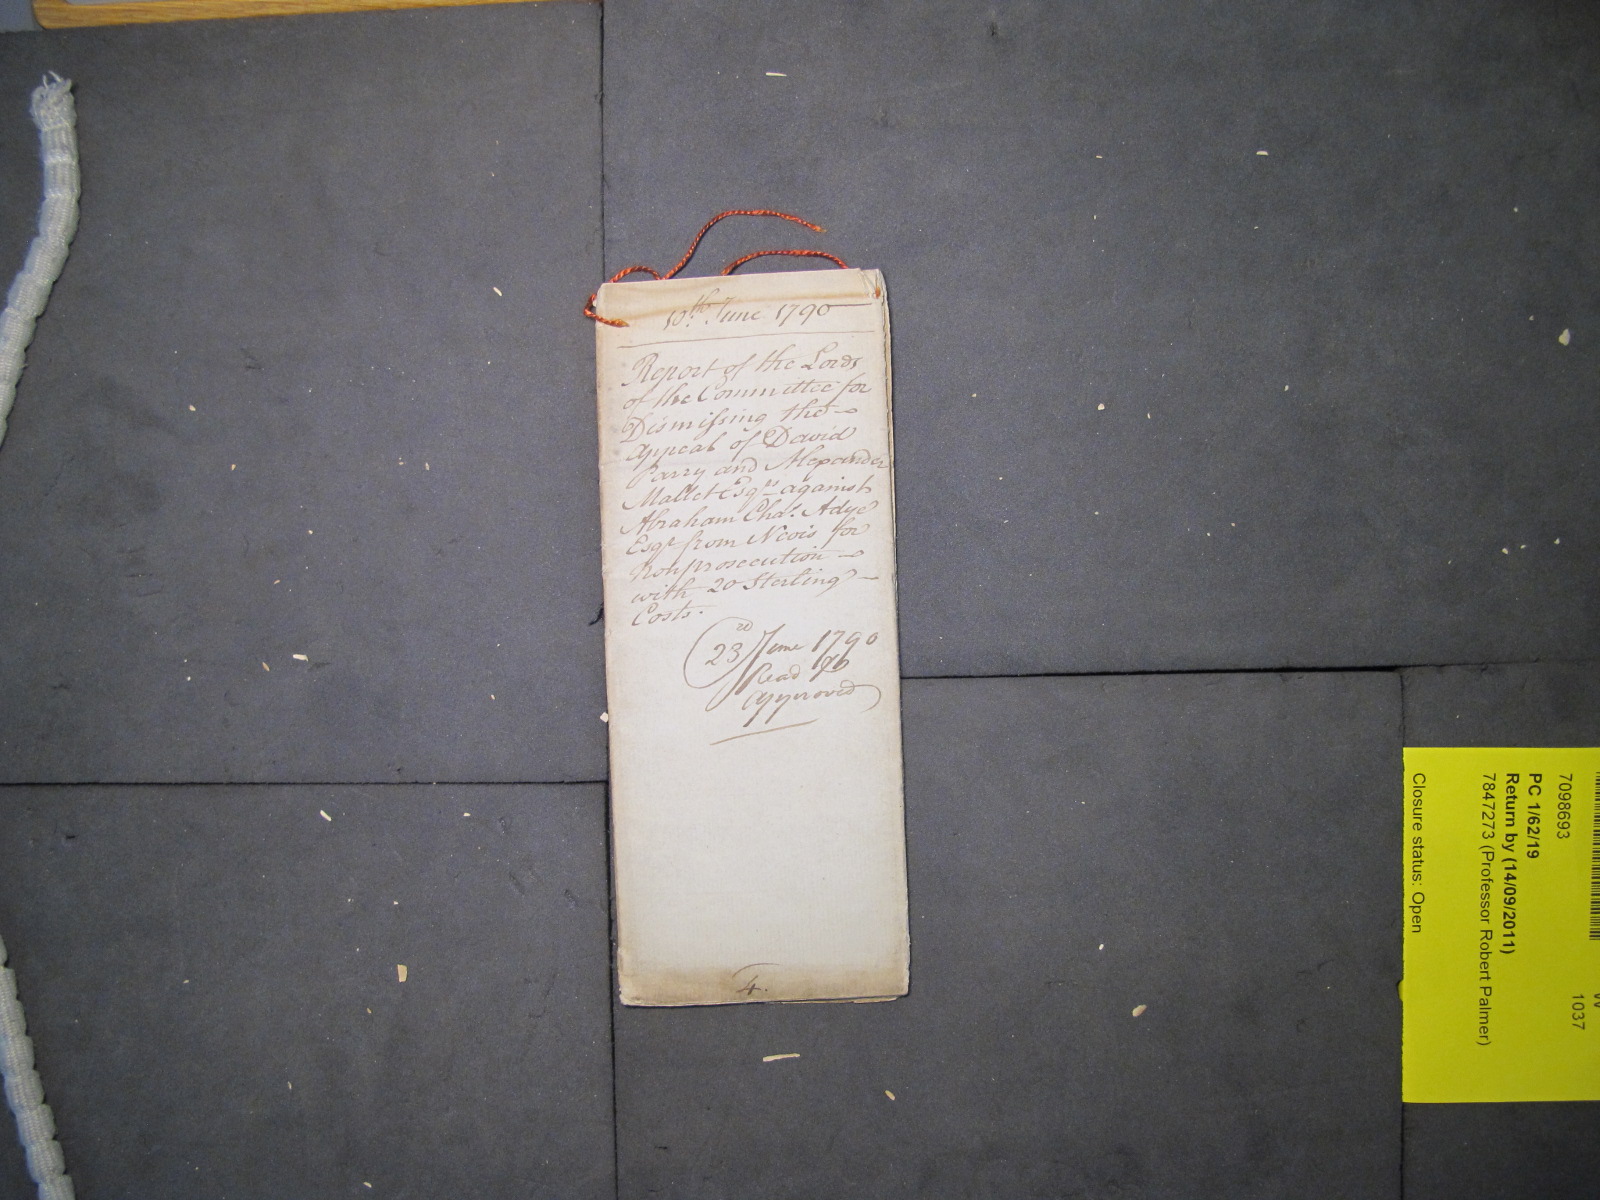 10th. June 1790
Report of the Lords
of the Committee for
Dismissing the
Appeal of David
Parry and Alexander
Mallet Esqrs. against
Abraham Chas. Adye
Esqr. from Nevis for
Nonprosecution
with 20 Sterling
Costs.
23rd June 1790
Read &
approved
4.
1037
7098693
PC 1/62/19
Return by (14/09/2011)
7847273 (Professor Robert Palmer)
Closure status: Open